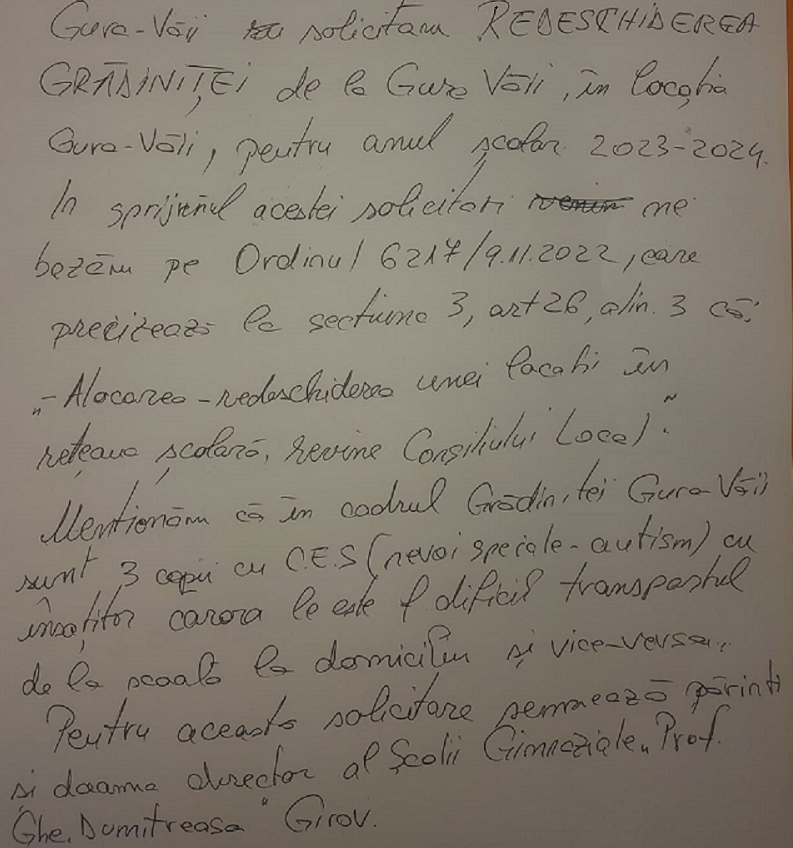 Gura-Văii solicităm REDESCHIDEREA
GRĂDINIȚEI de la Gura Văii, în locația
Gura-Văii, pentru anul școlar 2023-2024.
În sprijinul acestei solicitări venim ne
bazăm pe Ordinul 6217/9.11.2022, care
precizează la secțiune 3, art 26, alin. 3 că:
„-Alocarea-redeschiderea unei locatii în
rețeaua școlară, revine Consiliului Local".
Mentionăm că în cadrul Grădiniței Gura-Văii
sunt 3 copii cu C.E.S (nevoi speciale-autism) cu
însoțitor carora le este f dificil transportul
de la scoală la domiciliu și vice-versa.
Pentru aceasta solicitare semnează părinti
si doamna director al Școlii Gimnaziale „Prof.
Ghe. Dumitreasa" Girov.